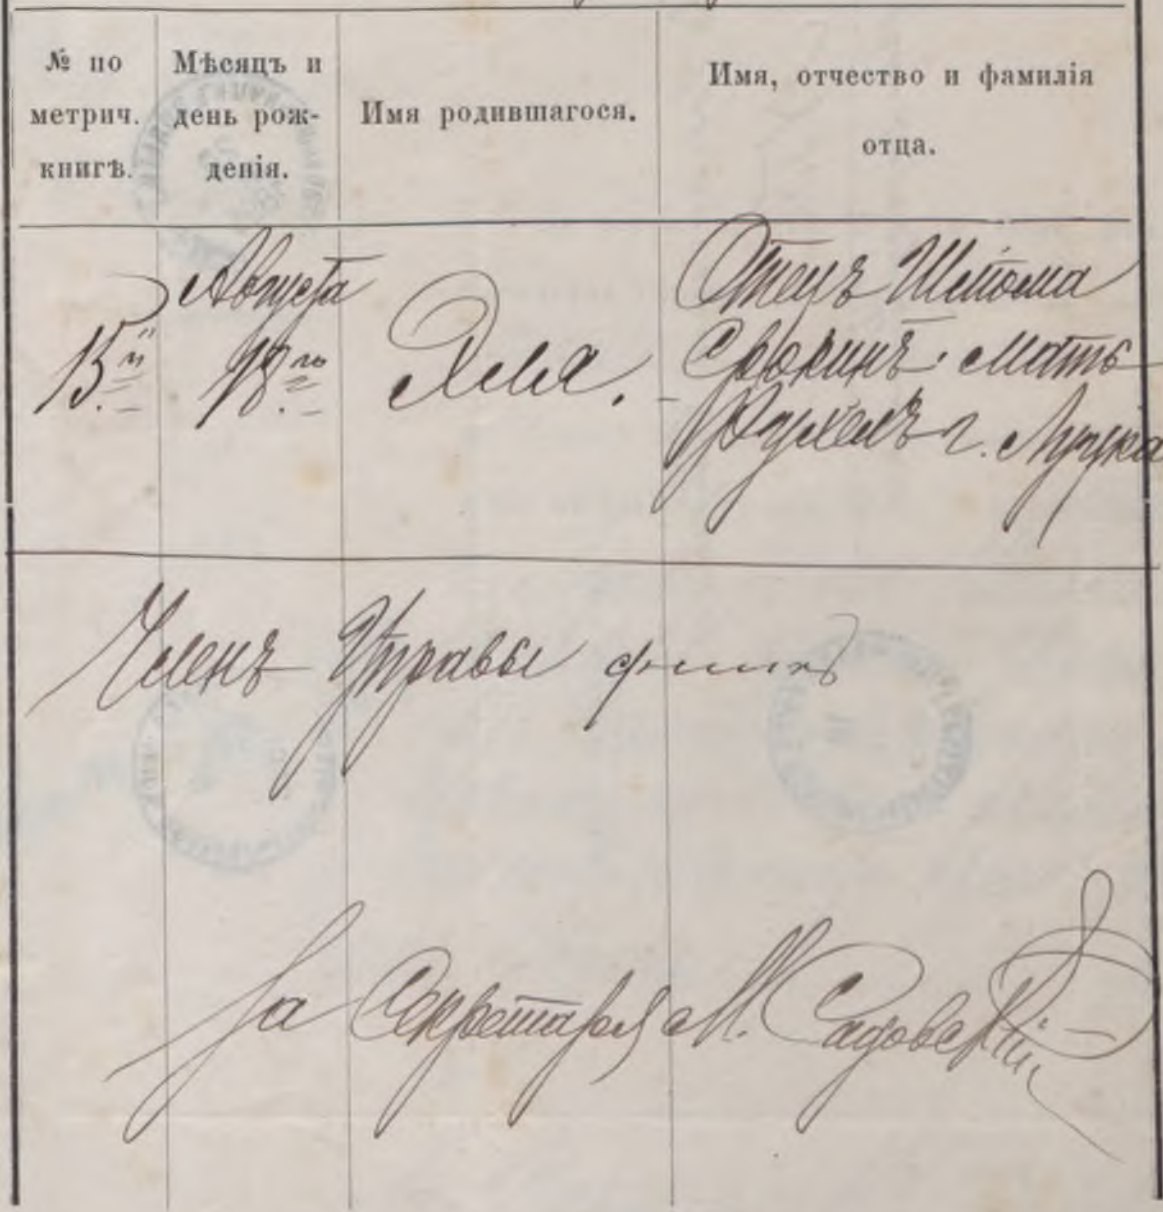 № по метрич. книгѣ.
Мѣсяцъ и день рожденія.
Имя родившагося.
Имя, отчество и фамилія отца.
15.й
Августа
18.го
Отецъ Шлiома
мать
г. Луцка
Членъ Управы
За Секретаря М. Садовскій